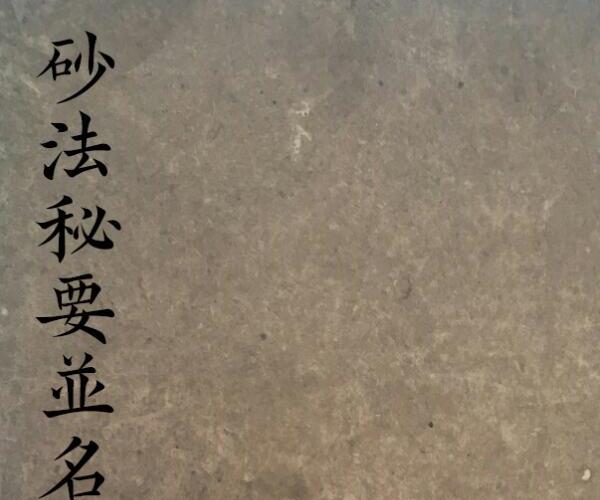 砂法秘要並名